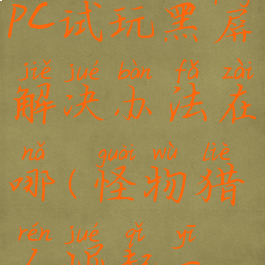 PC试玩黑屏
jiě jué bàn fǎ zài
解决办法在
nǎ guài wù liè
哪(怪物猎
rén jué qǐ yī